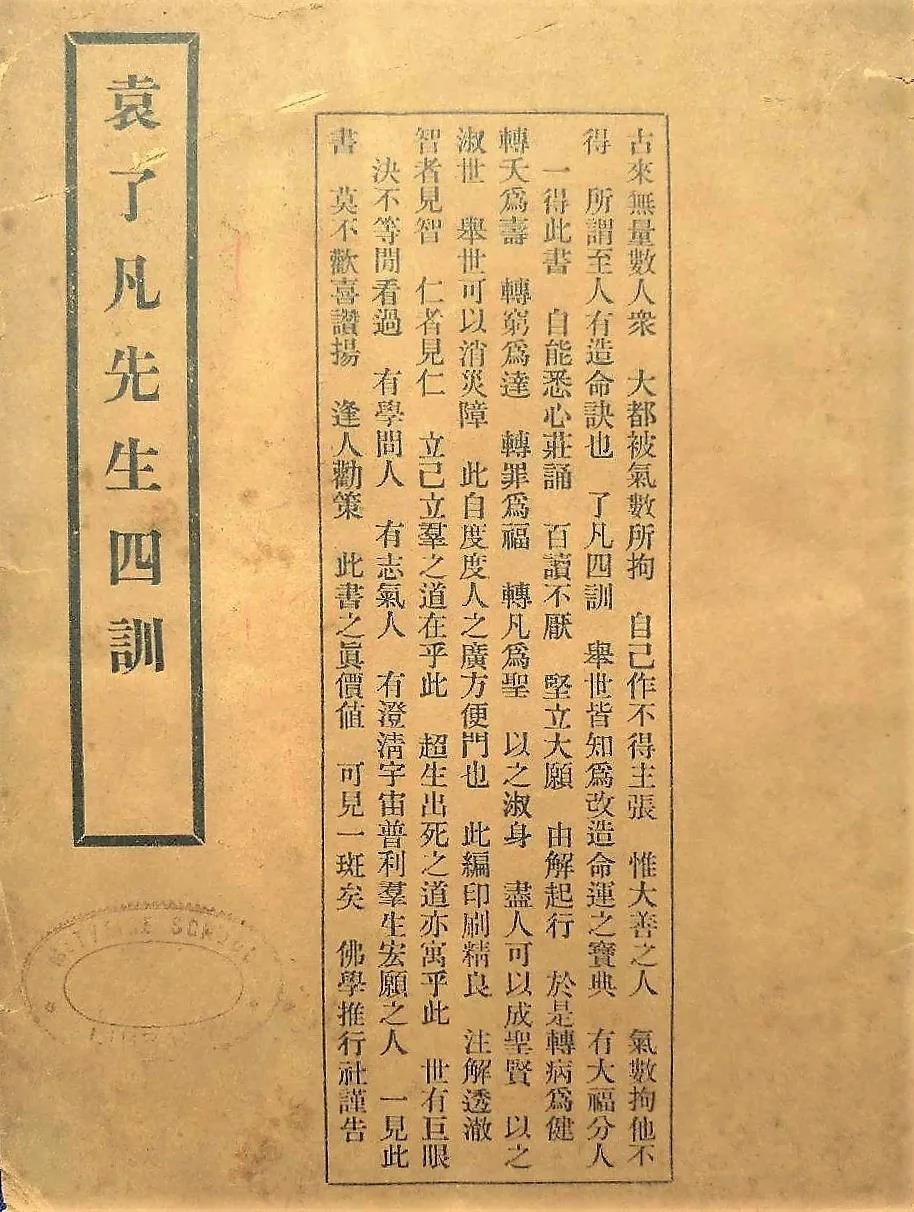 袁了凡先生四訓
古來無量數人衆　大都被氣數所拘　自己作不得主張　惟大善之人　氣數拘他不
得　所謂至人有造命訣也　了凡四訓　舉世皆知爲改造命運之寶典　有大福分人
一得此書　自能悉心莊誦　百讀不厭　堅立大願　由解起行　於是轉病爲健
轉夭爲壽　轉窮爲達　轉罪爲福　轉凡爲聖　以之淑身　盡人可以成聖賢　以之
淑世　舉世可以消災障　此自度度人之廣方便門也　此編印刷精良　注解透澈
智者見智　仁者見仁　立己立羣之道在乎此　超生出死之道亦寓乎此　世有巨眼
決不等閒看過　有學問人　有志氣人　有澄淸宇宙普利羣生宏願之人　一見此
書　莫不歡喜讚揚　逢人勸策　此書之眞價値　可見一斑矣　佛學推行社謹告